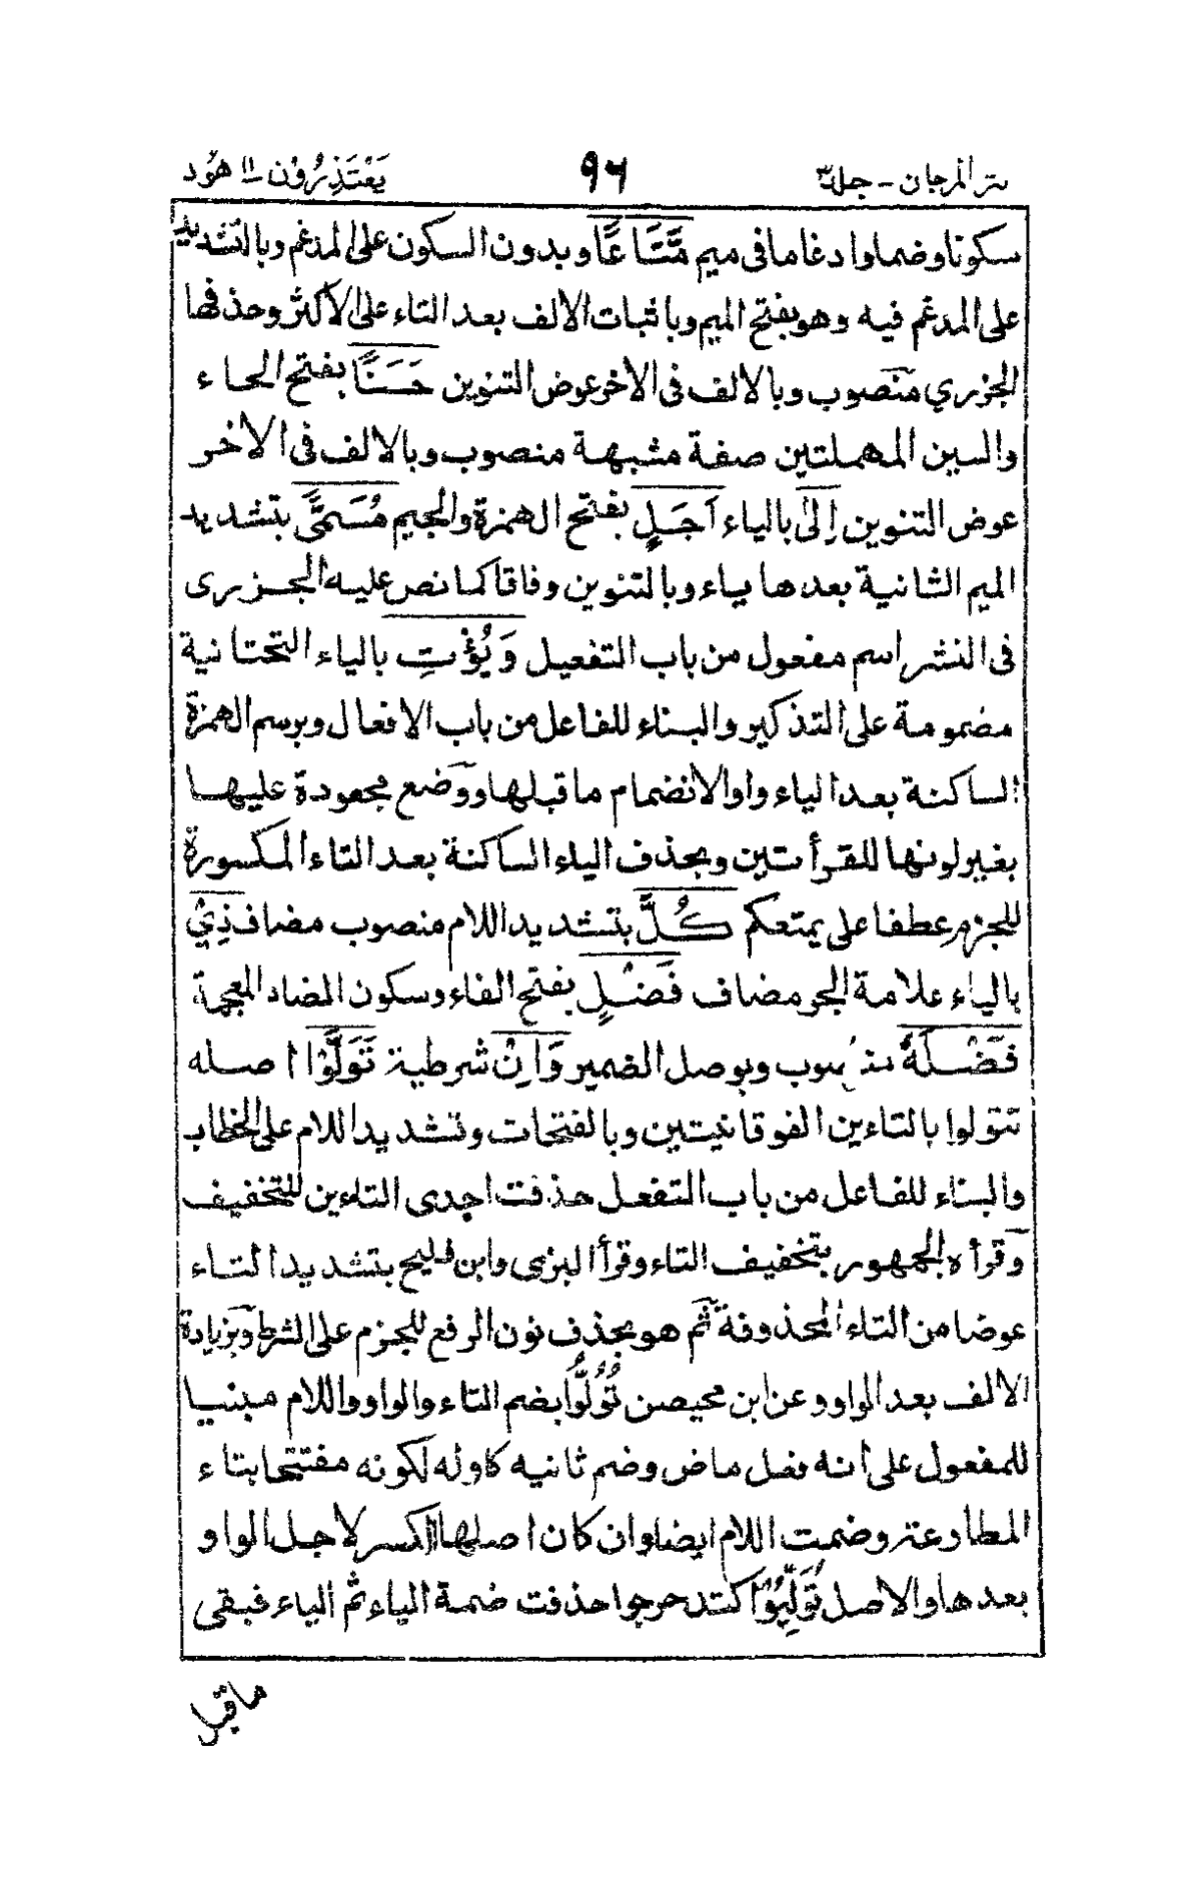 نثر المرجان - جلد ٣ ٩٦ يَعْتَذِرُوْنَ ١١ هُوْد
سكونا وضما وادغاما فى ميم مَّتَاعًا وبدون السكون على المدغم وبالتشديد
على المدغم فيه وهو بفتح الميم وباثبات الالف بعد التاء على الاكثر وحذفها
الجزري منصوب وبالالف فى الاخر عوض التنوين حَسَنًا بفتح الحاء
والسين المهملتين صفة مشبهة منصوب وبالالف فى الاخر
عوض التنوين اِلٰى بالياء اَجَلٍ بفتح الهمزة والجيم مُسَمًّى بتشديد
الميم الثانية بعدها ياء وبالتنوين وفاقا كما نص عليه الجزرى
فى النشر اسم مفعول من باب التفعيل وَيُؤْتِ بالياء التحتانية
مضمومة على التذكير والبناء للفاعل من باب الافعال وبرسم الهمزة
الساكنة بعد الياء واوا لانضمام ما قبلها ووضع مجعودة عليها
بغير لونها للقرأتين وبحذف الياء الساكنة بعد التاء المكسورة
للجزم عطفا على يمتعكم كُلَّ بتشديد اللام منصوب مضاف ذِيْ
بالياء علامة الجر مضاف فَضْلٍ بفتح الفاء وسكون الضاد المعجمة
فَضْلَهٗ منصوب وبوصل الضمير وَاِنْ شرطية تَوَلَّوْا اصله
تتولوا بالتاءين الفوقانيتين وبالفتحات وتشديد اللام على الخطاب
والبناء للفاعل من باب التفعل حذفت احدى التاءين للتخفيف
وقرأه الجمهور بتخفيف التاء وقرأ البزى وابن فليح بتشديد التاء
عوضا من التاء المحذوفة ثم هو بحذف نون الرفع للجزم على الشرط وبزيادة
الالف بعد الواو وعن ابن محيصن تُوُلُّوْا بضم التاء والواو واللام مبنيا
للمفعول على انه فعل ماض وضم ثانيه كاوله لكونه مفتتحا بتاء
المطاوعة وضمت اللام ايضا وان كان اصلها الكسر لاجل الواو
بعدها والاصل تُوُلِّيُوْا كتدحرجوا حذفت ضمة الياء ثم الياء فبقى
ما قبل